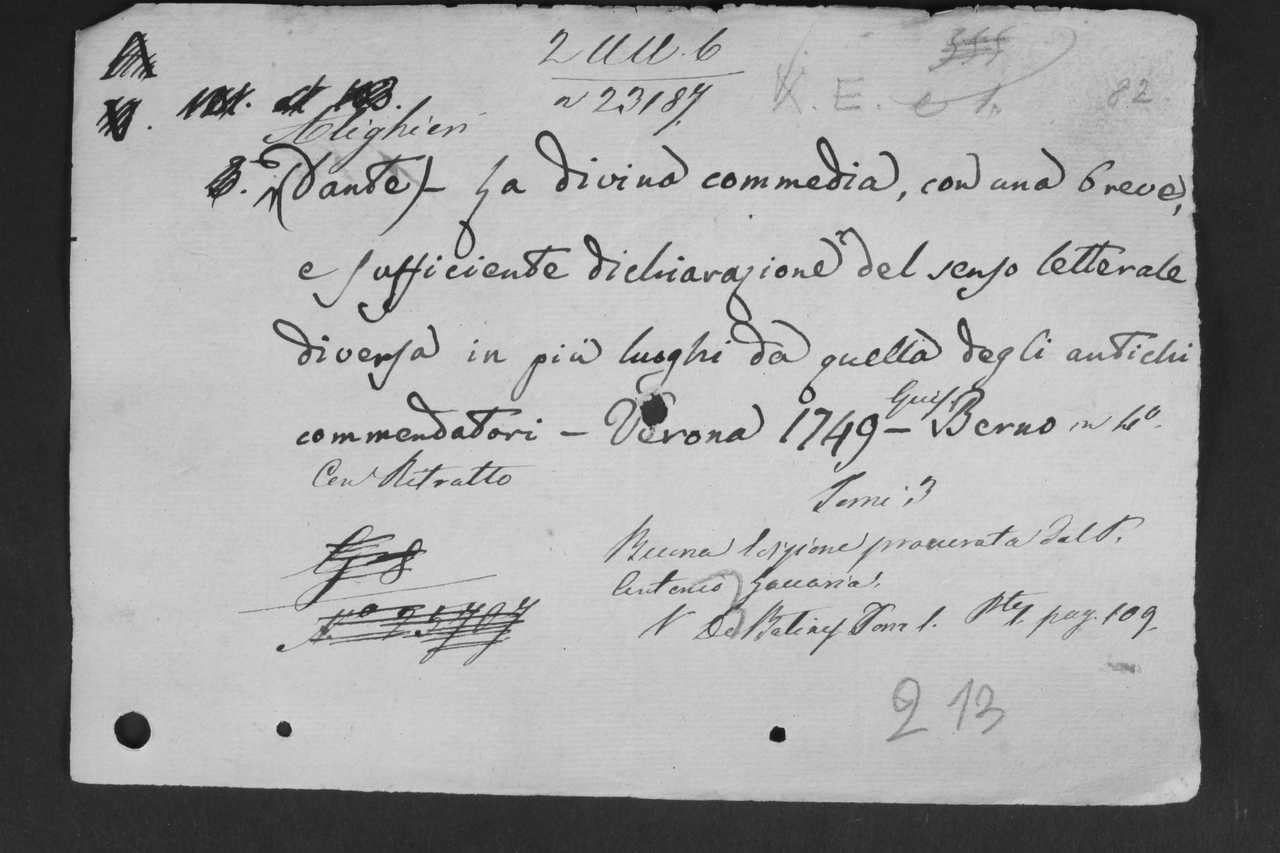 2 UU. 6
n 23187
X. E. e 1.
82.
Alighieri
(Dante) – La divina commedia, con una breve,
e sufficiente dichiarazione del senso letterale
diversa in più luoghi da quella degli antichi
commendatori – Verona 1749 – Gius. Berno in 4º.
Con Ritratto
Tomi 3
Buona edizione procurata dal P.
Antonio Zaccaria.
V De Batines Tom 1. Pte 1. pag. 109.
2 13